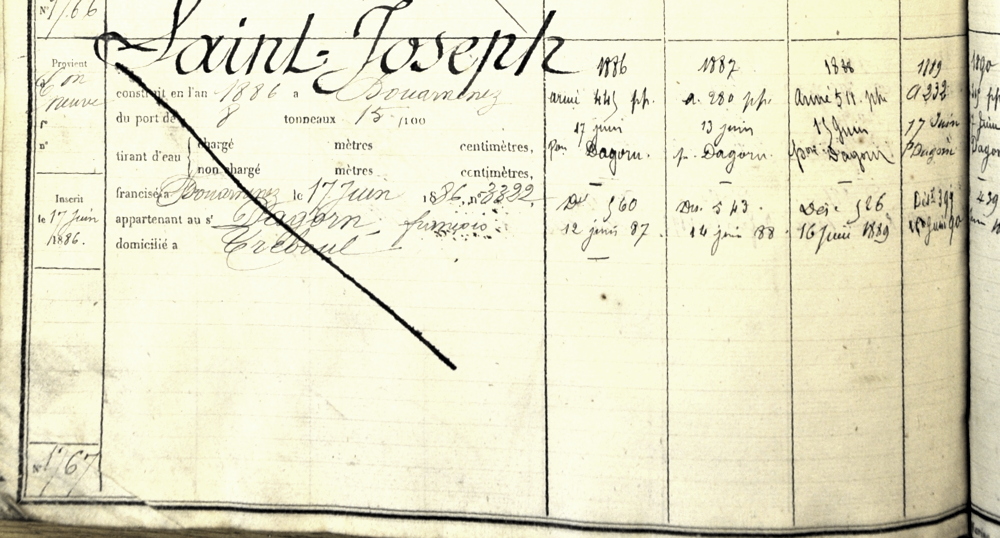 N° 1766
Saint-Joseph
Provient
Con
neuve
f°
n°
Inscrit
le 17 Juin
1886.
construit en l'an 1886 a Douarnenez
du port de 8 tonneaux 15 /100
tirant d'eau
chargé mètres centimètres,
non chargé mètres centimètres,
francisé a Douarnenez le 17 Juin 1886, n° 3322
appartenant au sr Dagorn françois
domicilié a Tréboul
1886
armé 445 pp.
17 juin
pon Dagorn.
Des 560
12 janv 87.
1887
a. 280 pp.
13 juin
p. Dagorn.
Des. 543.
14 jan 88
1888
Armé 511 ph
15 Juin
por Dagorn
Dés. 526
16 Janv 1889
1889
A 232
17 Juin
p Dagorn
Dést 399
90
1890
439
N° 1767